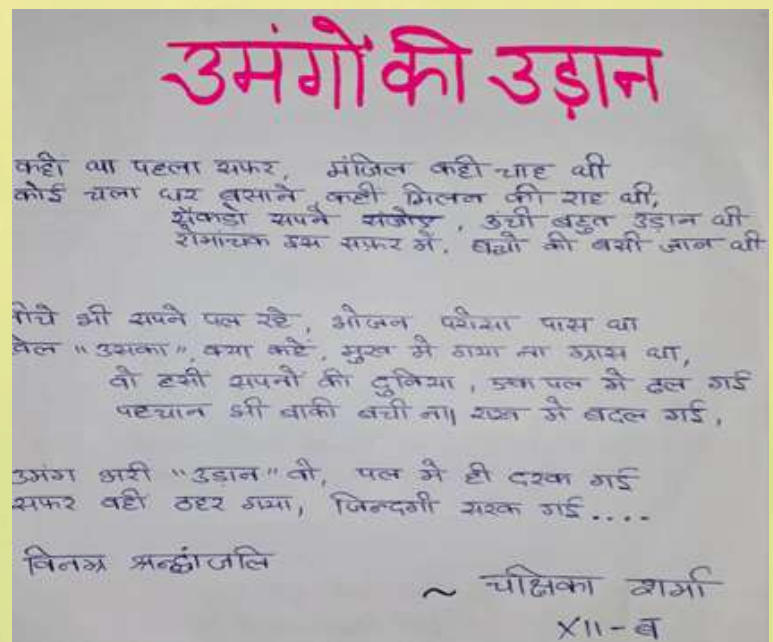 उमंगों की उड़ान
कही था पहला सफर, मंजिल कही चाह थी
कोई चला घर बसाने, कही मिलन की राह थी,
सैंकडो सपने संजोए, उची बहुत उड़ान थी
रोमांचक इस सफ़र में, बच्चो की बसी जान थी
नीचे भी सपने पल रहे, भोजन परोसा पास था
खेल "उसका", क्या कहे, मुख मे गया ना ग्रास था,
वो हसी सपनो की दुनिया, इक पल मे ढल गई
पहचान भी बाकी बची ना, राख मे बदल गई,
उमंग भरी "उड़ान" वो, पल मे ही दरक गई
सफर वही ठहर गया, जिन्दगी सरक गई....
विनम्र श्रन्द्धांजलि
~ चक्षिका शर्मा
XII-ब